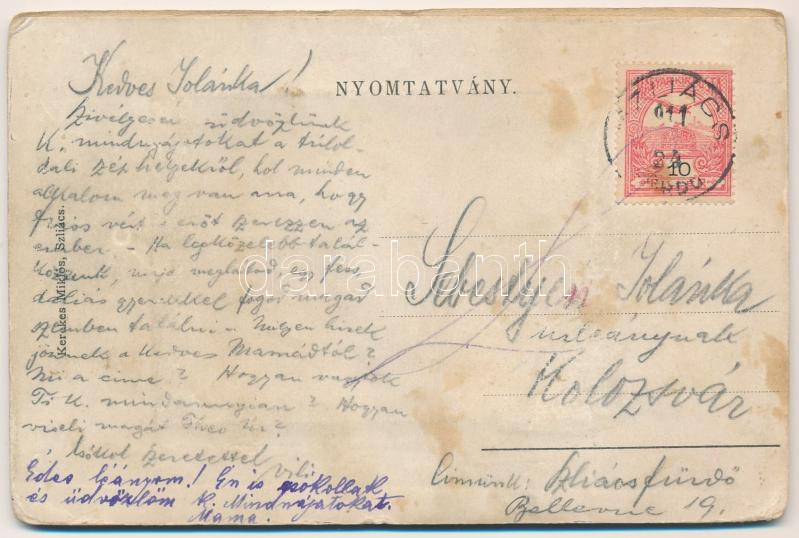 Kedves Jolánka!
NYOMTATVÁNY.
Szívélyesen üdvözlünk
K. mindnyájatokat a túlol-
dali szép helyekről, hol minden
alkalom meg van arra, hogy
friss vért s erőt szerezzen az
ember - Ha legközelebb talál-
kozunk, majd meglátod, egy
gyerekkel fogod magad
szemben találni. - Milyen hirek
jönnek a Kedves Mamádtól?
Mi a címe? Hogyan vagytok
Ti K. mindannyian? Hogyan
viseli magát
Csókol szeretettel
Vili
Édes leányom! Én is csókollak
és üdvözlöm k. Mindnyájatokat.
Mama.
Kerekes Miklós, Szliács.
SZLIÁCS
911
24
FÜRDŐ
10
Sebestyén Jolánka
urleánynak
Kolozsvár
Címünk: Szliácsfürdő
Bellevue 19.
darabanth